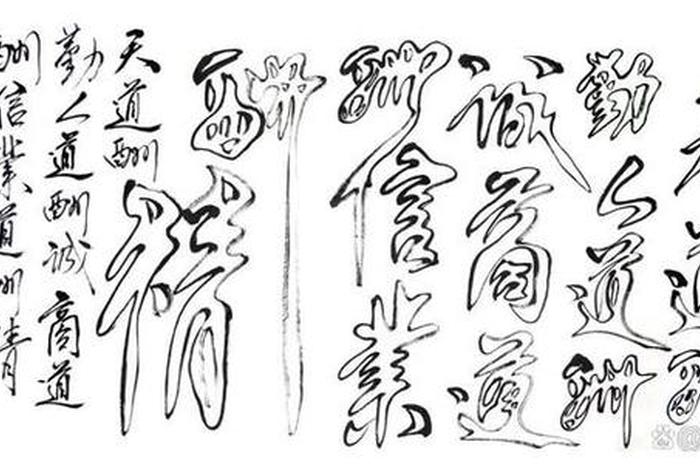 天道酬
勤人道酬
诚商道
酬信業
酬
精
天道酬
勤人道酬诚商道
酬信業道酬精